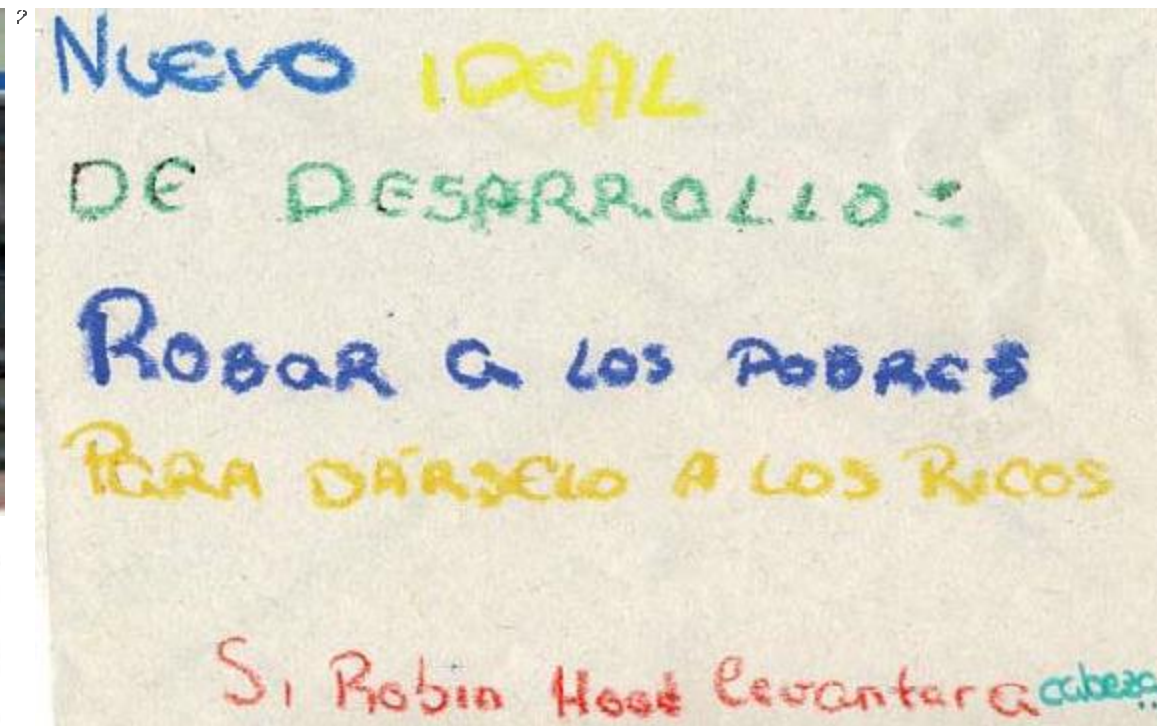 ?
NUEVO IDEAL
DE DESARROLLO:
ROBAR a LOS POBRES
PARA DÁRSELO A LOS RICOS
Si Robin Hood levantara cabeza..